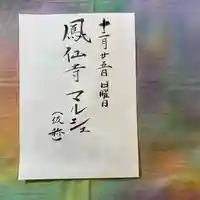 十二月廿五日日曜日
鳳仙寺マルシェ
（仮称）